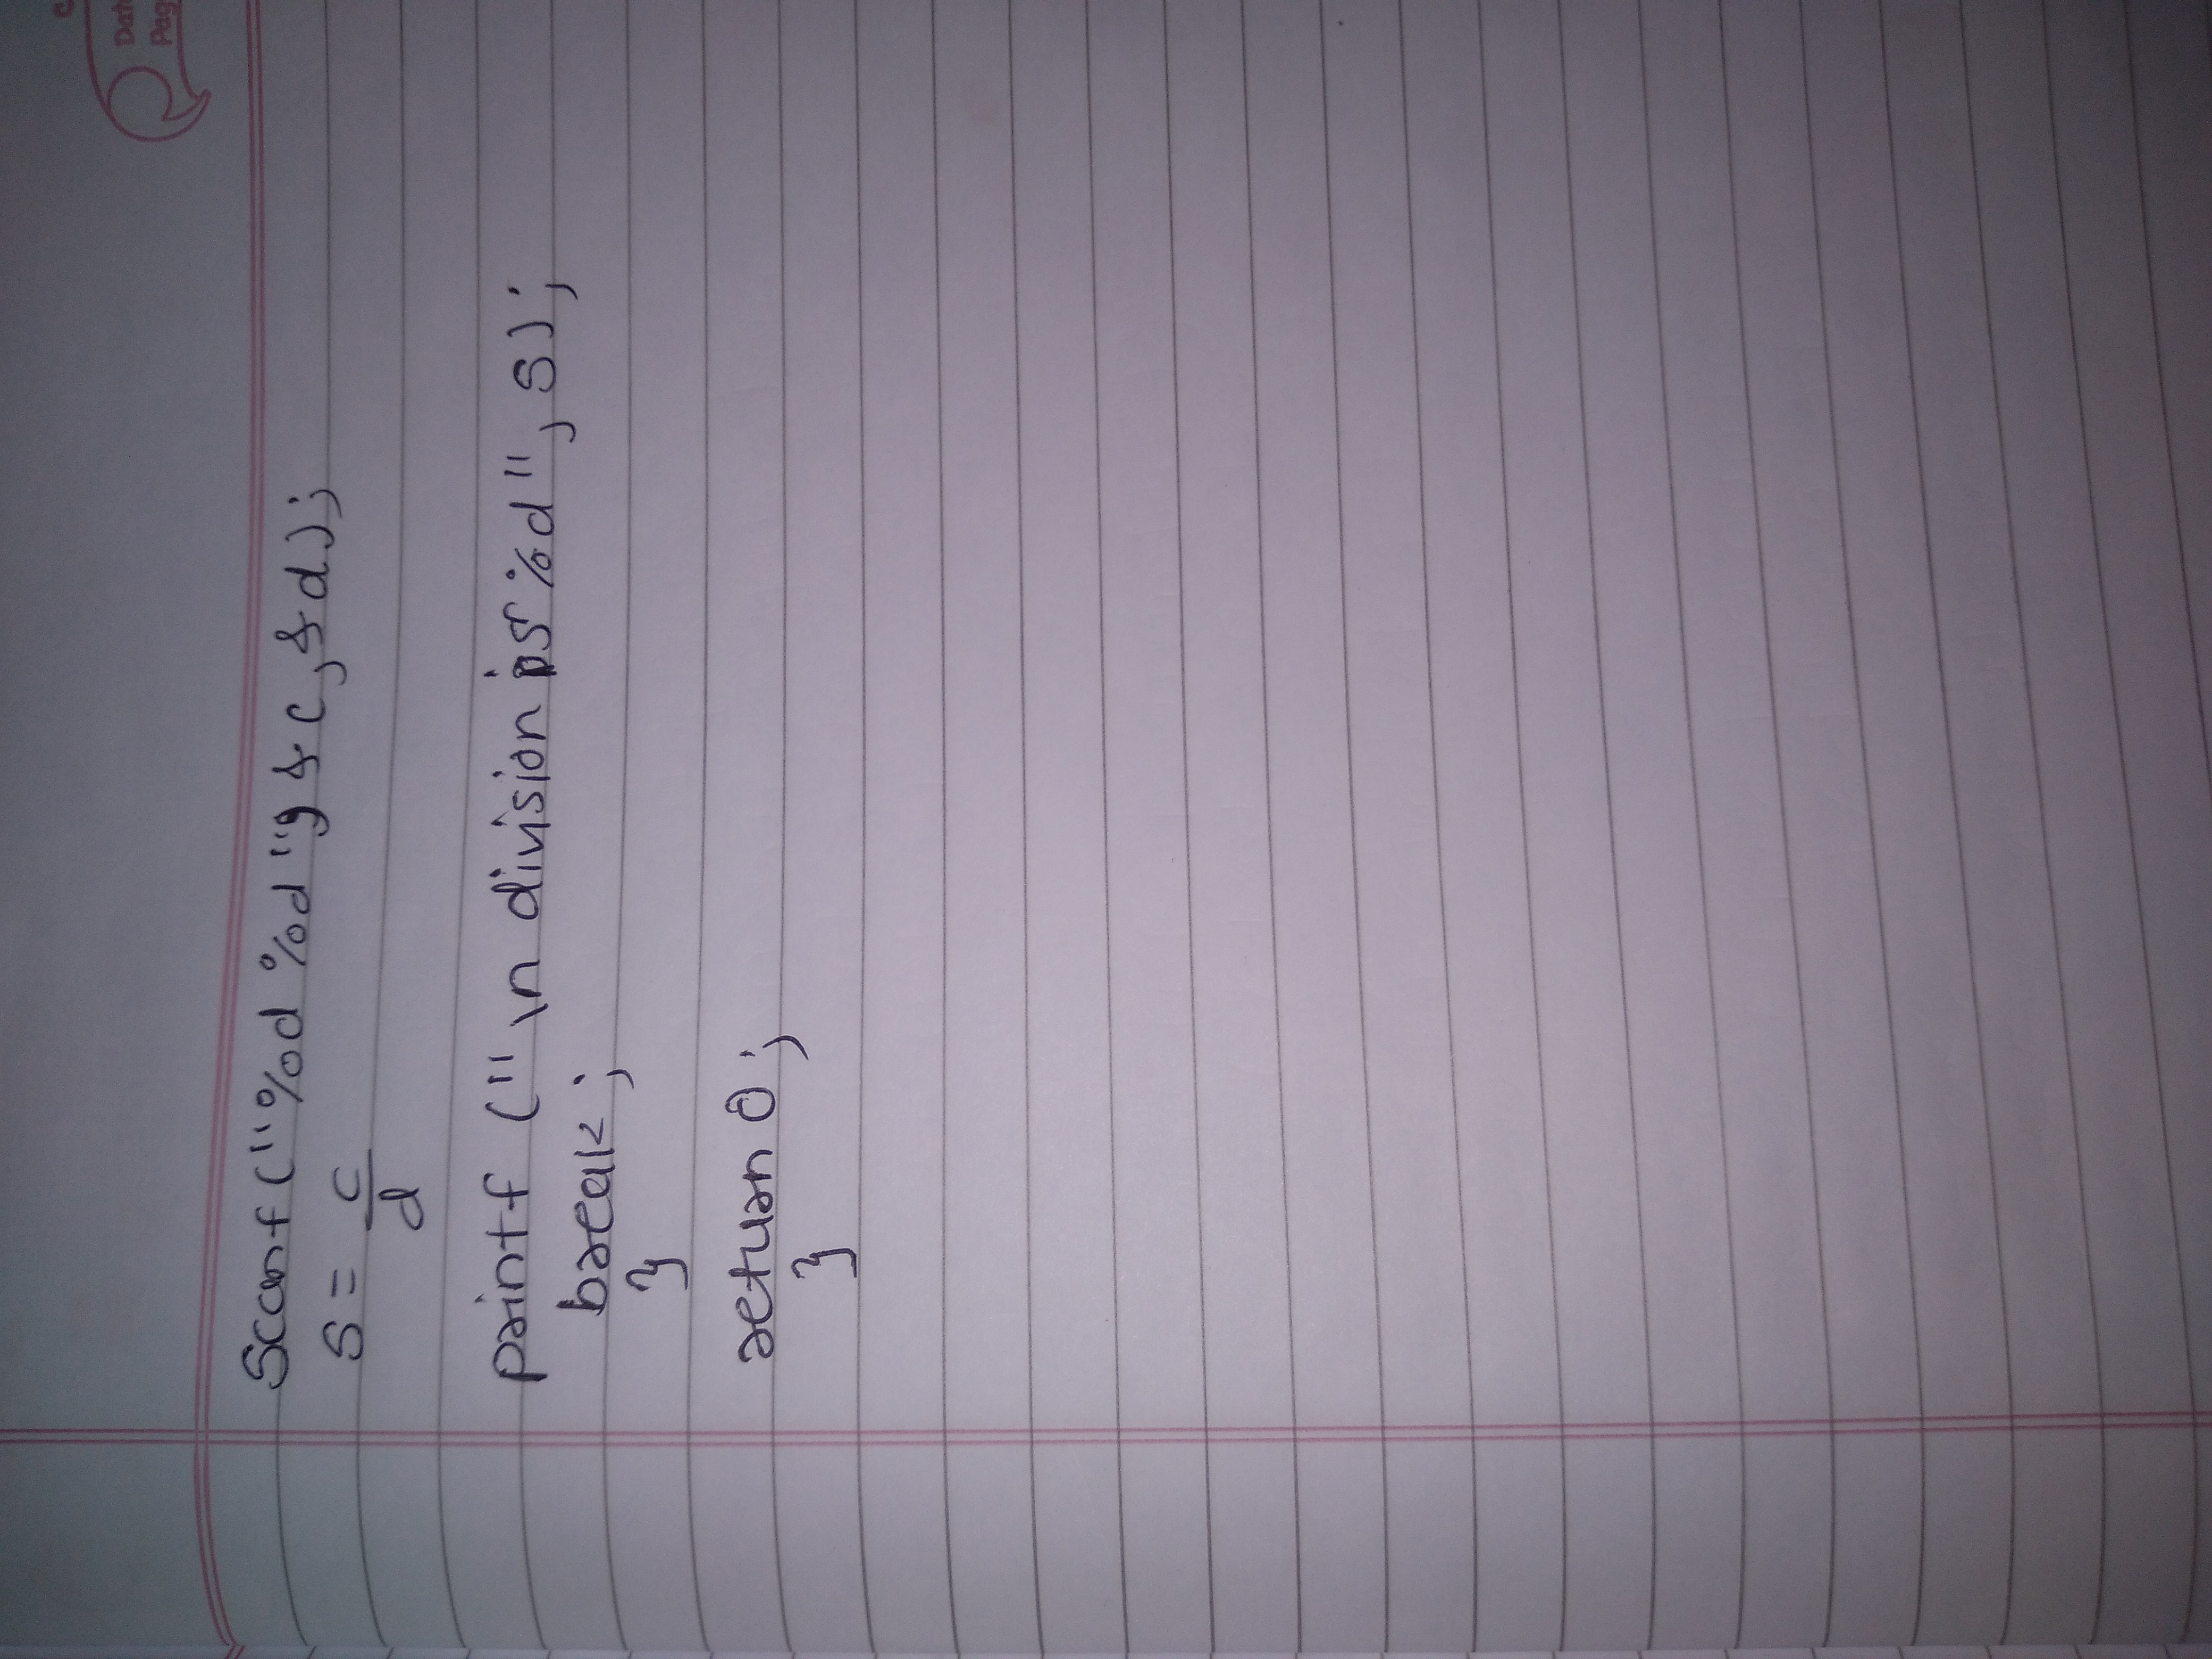 C
Dat
Pag
Scanf ("%d %d", &c, &d);
s = c
d
printf ("\n division is %d", s);
break;
}
return 0;
}